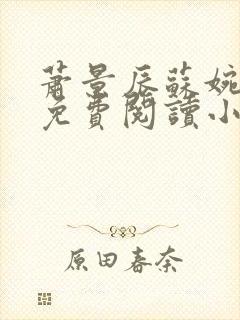 蕭景辰蘇婉
免費閱讀小
原田春奈